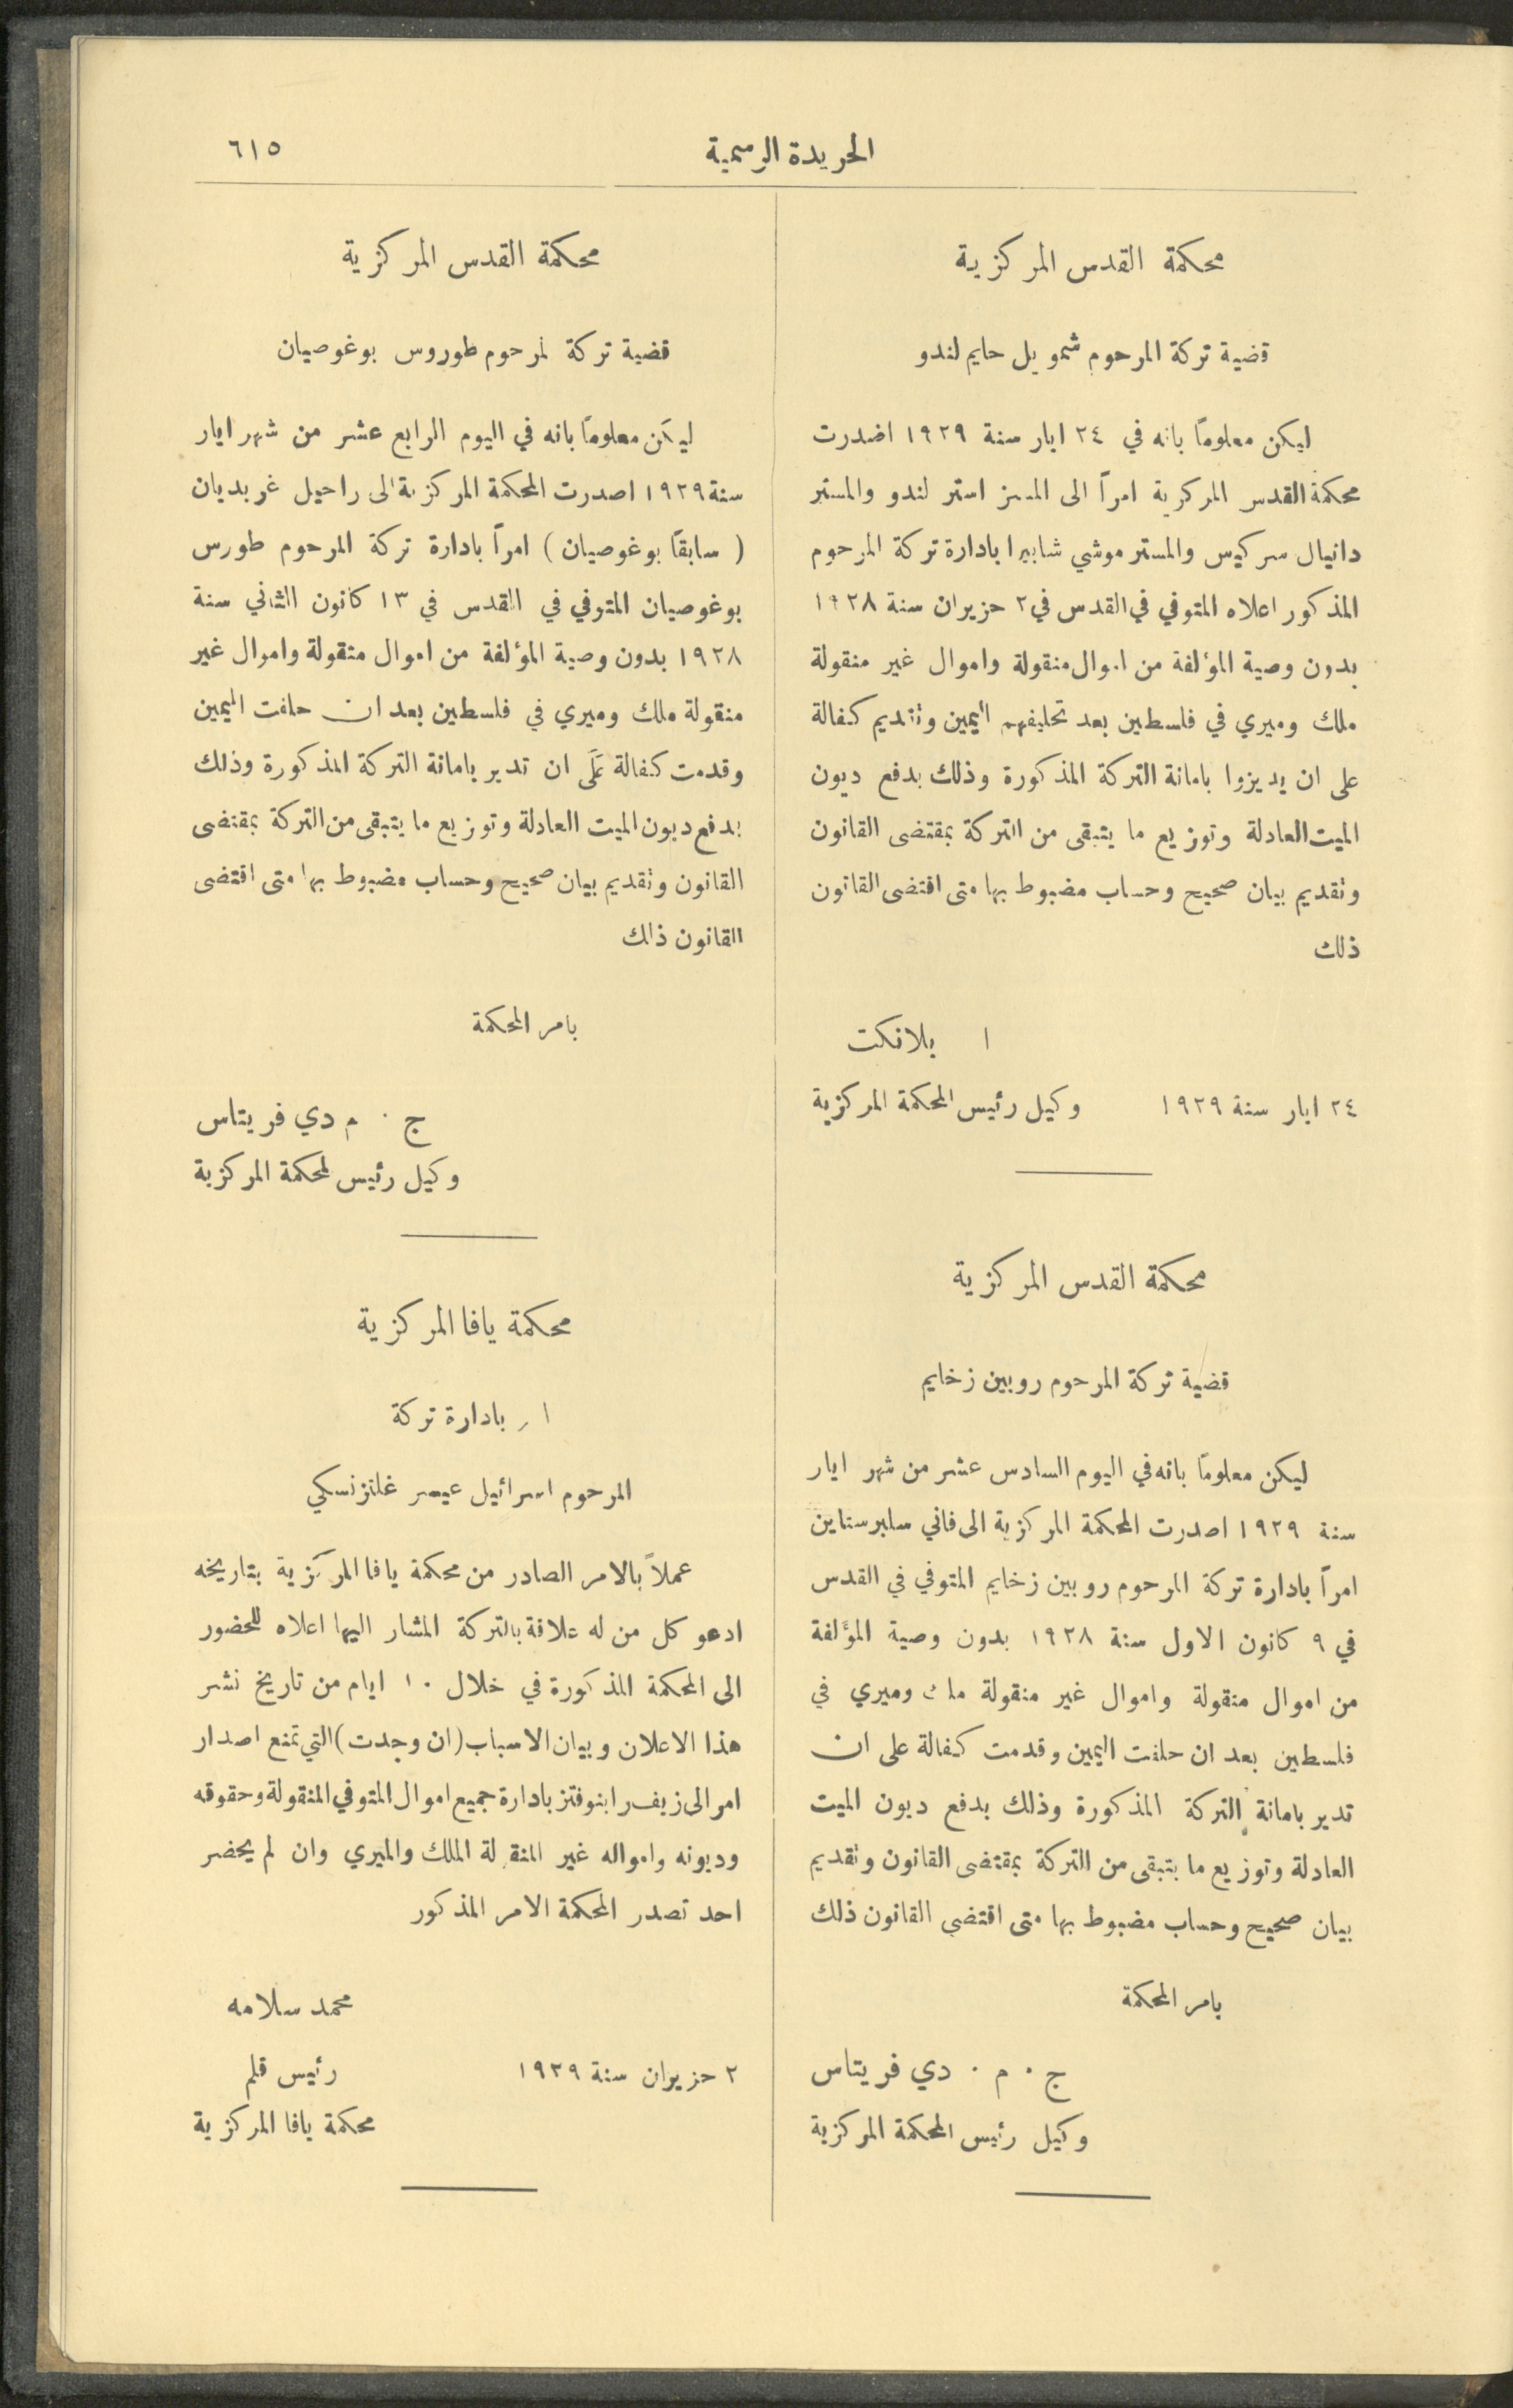 الجريدة الرسمية
٦١٥
محكمة القدس المركزية
قضية تركة المرحوم شمويل حايم لندو
ليكن معلوماً بانه في ٢٤ ايار سنة ١٩٢٩ اصدرت
محكمة القدس المركزية امراً الى المسز استر لندو والمستر
دانيال سركيس والمستر موشي شابيرا بادارة تركة المرحوم
المذكور اعلاه المتوفي في القدس في ٢ حزيران سنة ١٩٢٨
بدون وصية المؤلفة من اموال منقولة واموال غير منقولة
ملك وميري في فلسطين بعد تحليفهم اليمين وتقديم كفالة
على ان يديروا بامانة التركة المذكورة وذلك بدفع ديون
الميت العادلة وتوزيع ما يتبقى من التركة بمقتضى القانون
وتقديم بيان صحيح وحساب مضبوط بها متى اقتضى القانون
ذلك
ا بلانكت
٢٤ ايار سنة ١٩٢٩ وكيل رئيس المحكمة المركزية
محكمة القدس المركزية
قضية تركة المرحوم روبين زخايم
ليكن معلوماً بانه في اليوم السادس عشر من شهر ايار
سنة ١٩٢٩ اصدرت المحكمة المركزية الى فاني سلبرستاين
امراً بادارة تركة المرحوم روبين زخايم المتوفي في القدس
في ٩ كانون الاول سنة ١٩٢٨ بدون وصية المؤلفة
من اموال منقولة واموال غير منقولة ملك وميري في
فلسطين بعد ان حلفت اليمين وقدمت كفالة على ان
تدير بامانة التركة المذكورة وذلك بدفع ديون الميت
العادلة وتوزيع ما يتبقى من التركة بمقتضى القانون وتقديم
بيان صحيح وحساب مضبوط بها متى اقتضى القانون ذلك
بامر المحكمة
ج . م . دي فريتاس
وكيل رئيس المحكمة المركزية
محكمة القدس المركزية
قضية تركة لمرحوم طوروس بوغوصيان
ليكن معلوماً بانه في اليوم الرابع عشر من شهر ايار
سنة ١٩٢٩ اصدرت المحكمة المركزية الى راحيل غريديان
( سابقاً بوغوصيان ) امراً بادارة تركة المرحوم طورس
بوغوصيان المتوفي في القدس في ١٣ كانون الثاني سنة
١٩٢٨ بدون وصية المؤلفة من اموال منقولة واموال غير
منقولة ملك وميري في فلسطين بعد ان حلفت اليمين
وقدمت كفالة على ان تدير بامانة التركة المذكورة وذلك
بدفع ديون الميت العادلة وتوزيع ما يتبقى من التركة بمقتضى
القانون وتقديم بيان صحيح وحساب مضبوط بها متى اقتضى
القانون ذلك
بامر المحكمة
ج . م دي فريتاس
وكيل رئيس لمحكمة المركزية
محكمة يافا المركزية
بادارة تركة
المرحوم اسرائيل عيسر غلنزنسكي
عملاً بالامر الصادر من محكمة يافا المركزية بتاريخه
ادعو كل من له علاقة بالتركة المشار اليها اعلاه للحضور
الى المحكمة المذكورة في خلال ١٠ ايام من تاريخ نشر
هذا الاعلان وبيان الاسباب (ان وجدت) التي تمنع اصدار
امر الى زيف رابنوفتز بادارة جميع اموال المتوفي المنقولة وحقوقه
وديونه وامواله غير المنقولة الملك والميري وان لم يحضر
احد تصدر المحكمة الامر المذكور
محمد سلامه
٢ حزيران سنة ١٩٢٩ رئيس قلم
محكمة يافا المركزية